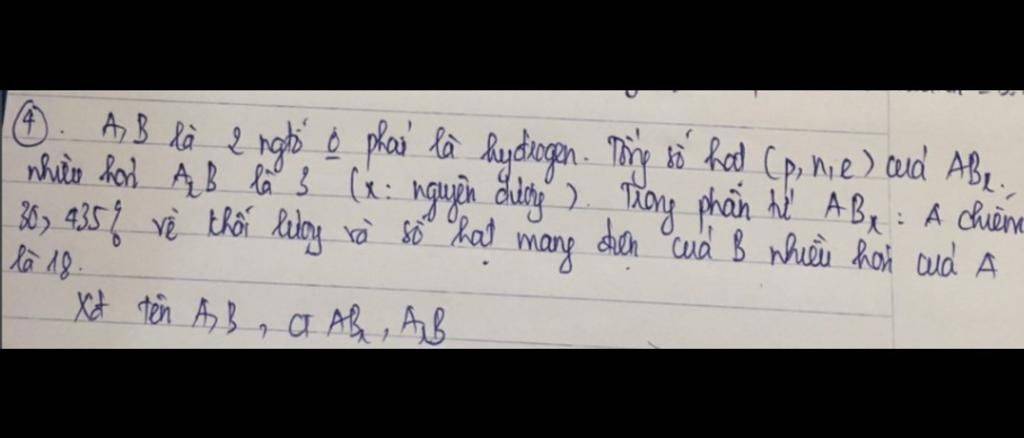 ④. A, B là 2 ngtố o phải là hydrogen. Tổng số hạt (p, n, e) của ABx
nhiều hơn AxB là 3 (x: nguyên dương). Trong phân tử ABx: A chiếm
30,435% về khối lượng và số hạt mang điện của B nhiều hơn của A
là 18.
Xđ tên A, B, CT ABx, AxB